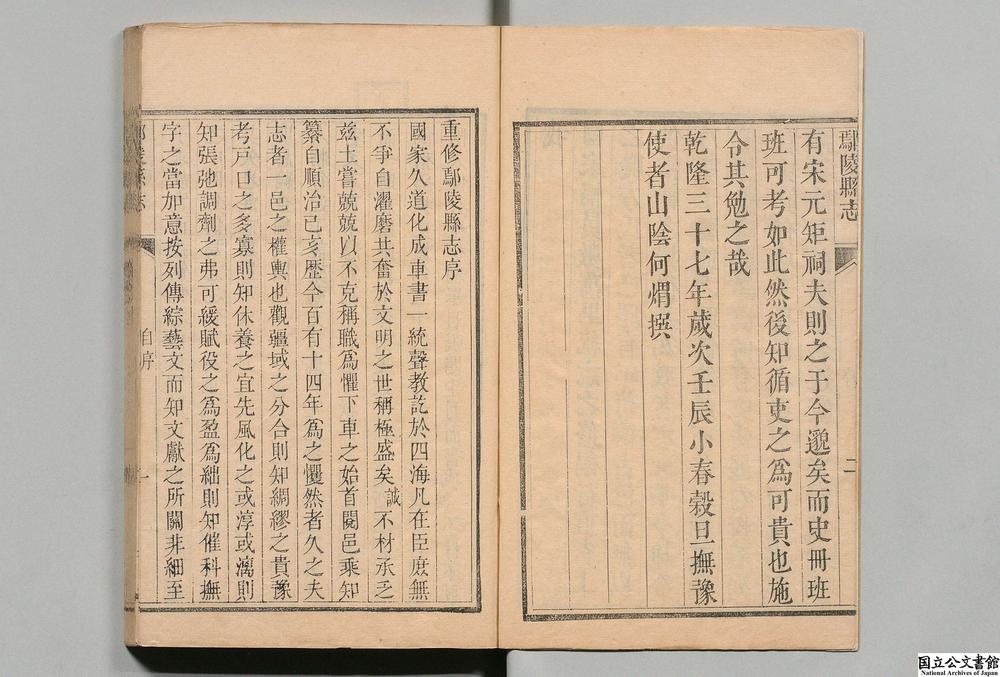 鄢陵縣志
二
有宋元矩祠夫則之于今邈矣而史冊班
班可考如此然後知循吏之為可貴也施
令其勉之哉
乾隆三十七年歲次壬辰小春穀旦撫豫
使者山陰何煟撰
重修鄢陵縣志序
國家久道化成車書一統聲教訖於四海凡在臣庶無
不爭自濯磨共奮於文明之世稱極盛矣誠不材承乏
兹土嘗兢兢以不克稱職爲懼下車之始首閱邑乘知
纂自順治己亥歷今百有十四年爲之懼然者久之夫
志者一邑之權輿也觀疆域之分合則知綢繆之貴豫
考戸口之多寡則知休養之宜先風化之或淳或漓則
知張弛調劑之弗可緩賦役之爲盈爲絀則知催科撫
字之當加意按列傳綜藝文而知文獻之所關非細至
自序
一
国立公文書館
National Archives of Japan